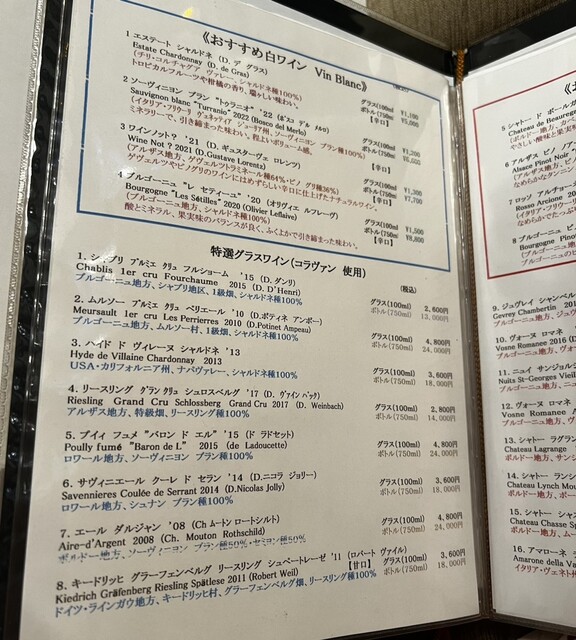 《おすすめ白ワイン Vin Blanc》
1 エステート シャルドネ (D. デ グラス)
Estate Chardonnay (D. de Gras)
(チリ・コルチャグア ヴァレー、シャルドネ種100%)
トロピカルフルーツや柑橘の香り、瑞々しい味わい。
グラス(100ml) ¥1,100
ボトル(750ml)
【辛口】
2 ソーヴィニヨン ブラン "トゥラニオ" '22 (ボスコ デル メルロ)
Sauvignon blanc "Turranio" 2022 (Bosco del Merlo)
(イタリア・フリウリ ヴェネツィア ジューリア州、ソーヴィニヨン ブラン種100%)
ミネラリーで、引き締まった味わい。程よいボリューム感。
グラス(100ml) ¥1,200
ボトル(750ml)
【辛口】
3 ワインノット? '21 (D.ギュスターヴェ ロレンツ)
Wine Not ? 2021 (D.Gustave Lorentz)
(アルザス地方、ゲヴェルツトラミネール種64%・ピノ グリ種36%)
ゲヴェルツやピノグリのワインにはめずらしい辛口に仕上げたナチュラルワイン。
グラス(100ml) ¥1,300
ボトル(750ml) ¥7,700
【辛口】
4 ブルゴーニュ "レ セティーユ" '20 (オリヴィエ ルフレーヴ)
Bourgogne "Les Sétilles" 2020 (Olivier Leflaive)
(ブルゴーニュ地方、シャルドネ種100%)
酸とミネラル、果実味のバランスが良く、ふくよかで引き締まった味わい。
グラス(100ml) ¥1,500
ボトル(750ml) ¥8,800
【辛口】
特選グラスワイン(コラヴァン 使用)
(税込)
1. シャブリ プルミエ クリュ フルショーム '15 (D. ダンリ)
Chablis 1er cru Fourchaume 2015 (D. D'Henri)
ブルゴーニュ地方、シャブリ地区、1級畑、シャルドネ種100%
グラス(100ml) 2,600円
ボトル(750ml) 13,000円
2. ムルソー プルミエ クリュ ペリエール '10 (D.ポティネ アンポー)
Meursault 1er cru Les Perrierres 2010 (D.Potinet Ampeau)
ブルゴーニュ地方、ムルソー村、1級畑、シャルドネ種100%
グラス(100ml) 4,800円
ボトル(750ml) 24,000円
3. ハイド ド ヴィレーヌ シャルドネ '13
Hyde de Villaine Chardonnay 2013
USA・カリフォルニア州、ナパヴァレー、シャルドネ種100%
グラス(100ml) 3,600円
ボトル(750ml) 18,000円
4. リースリング グラン クリュ シュロスベルグ '17 (D. ヴァインバック)
Riesling Grand Cru Schlossberg Grand Cru 2017 (D. Weinbach)
アルザス地方、特級畑、リースリング種100%
グラス(100ml) 2,800円
ボトル(750ml) 14,000円
5. プイィ フュメ "バロン ド エル" '15 (ド ラドセット)
Poully fumé "Baron de L" 2015 (de Ladoucette)
ロワール地方、ソーヴィニヨン ブラン種100%
グラス(100ml) 4,800円
ボトル(750ml) 24,000円
6. サヴィニエール クーレ ド セラン '14 (D.ニコラ ジョリー)
Savennieres Coulée de Serrant 2014 (D.Nicolas Joly)
ロワール地方、シュナン ブラン種100%
グラス(100ml) 3,600円
ボトル(750ml) 18,000円
7. エール ダルジャン '08 (Ch ムートン ロートシルト)
Aire-d'Argent 2008 (Ch. Mouton Rothschild)
ボルドー地方、ソーヴィニヨン ブラン種50%・セミヨン種50%
グラス(100ml) 4,800円
ボトル(750ml) 24,000円
8. キードリッヒ グラーフェンベルグ リースリング シュペートレーゼ '11 (ロバート ヴァイル)
Kiedrich Gräfenberg Riesling Spätlese 2011 (Robert Weil) 【甘口】
ドイツ・ラインガウ地方、キードリッヒ村、グラーフェンベルグ畑、リースリング種100%
グラス(100ml) 3,600円
ボトル(750ml) 18,000円
《お
5 シャトー ド ボールガ
Chateau de Beaureg
(ボルドー地方、カベ
やさしい酸味と果実
6 アルザス ピノ ノア
Alsace Pinot Noir
(アルザス地方、ピ
なめらかなタンニン
7 ロッソ アルチョー
Rosso Arcione 20
(イタリア・フリウーリ
なめらかでたっぷ
8 ブルゴーニュ ピ
Bourgogne Pino
(ブルゴーニュ地
ブルゴーニュのピ
9. ジュヴレイ シャンベル
Gevrey Chambertin 201
ブルゴーニュ地方、ジュ
10. ヴォーヌ ロマネ
Vosne Romanee 2016 (D
ブルゴーニュ地方、ヴォー
11. ニュイ サンジョルジ
Nuits St-Georges Vieil
ブルゴーニュ地方、ニュ
12. ヴォーヌ ロマネ
Vosne Romanee
ブルゴーニュ地方、ヴ
13. シャトー ラグラン
Chateau Lagrange
ボルドー地方、サン
14. シャトー ランシ
Chateau Lynch Mou
ボルドー地方、ポー
15. シャトー シャス
Chateau Chasse Sp
ボルドー地方、ムー
16. アマローネ
Amarone della Va
イタリア・ヴェネト州